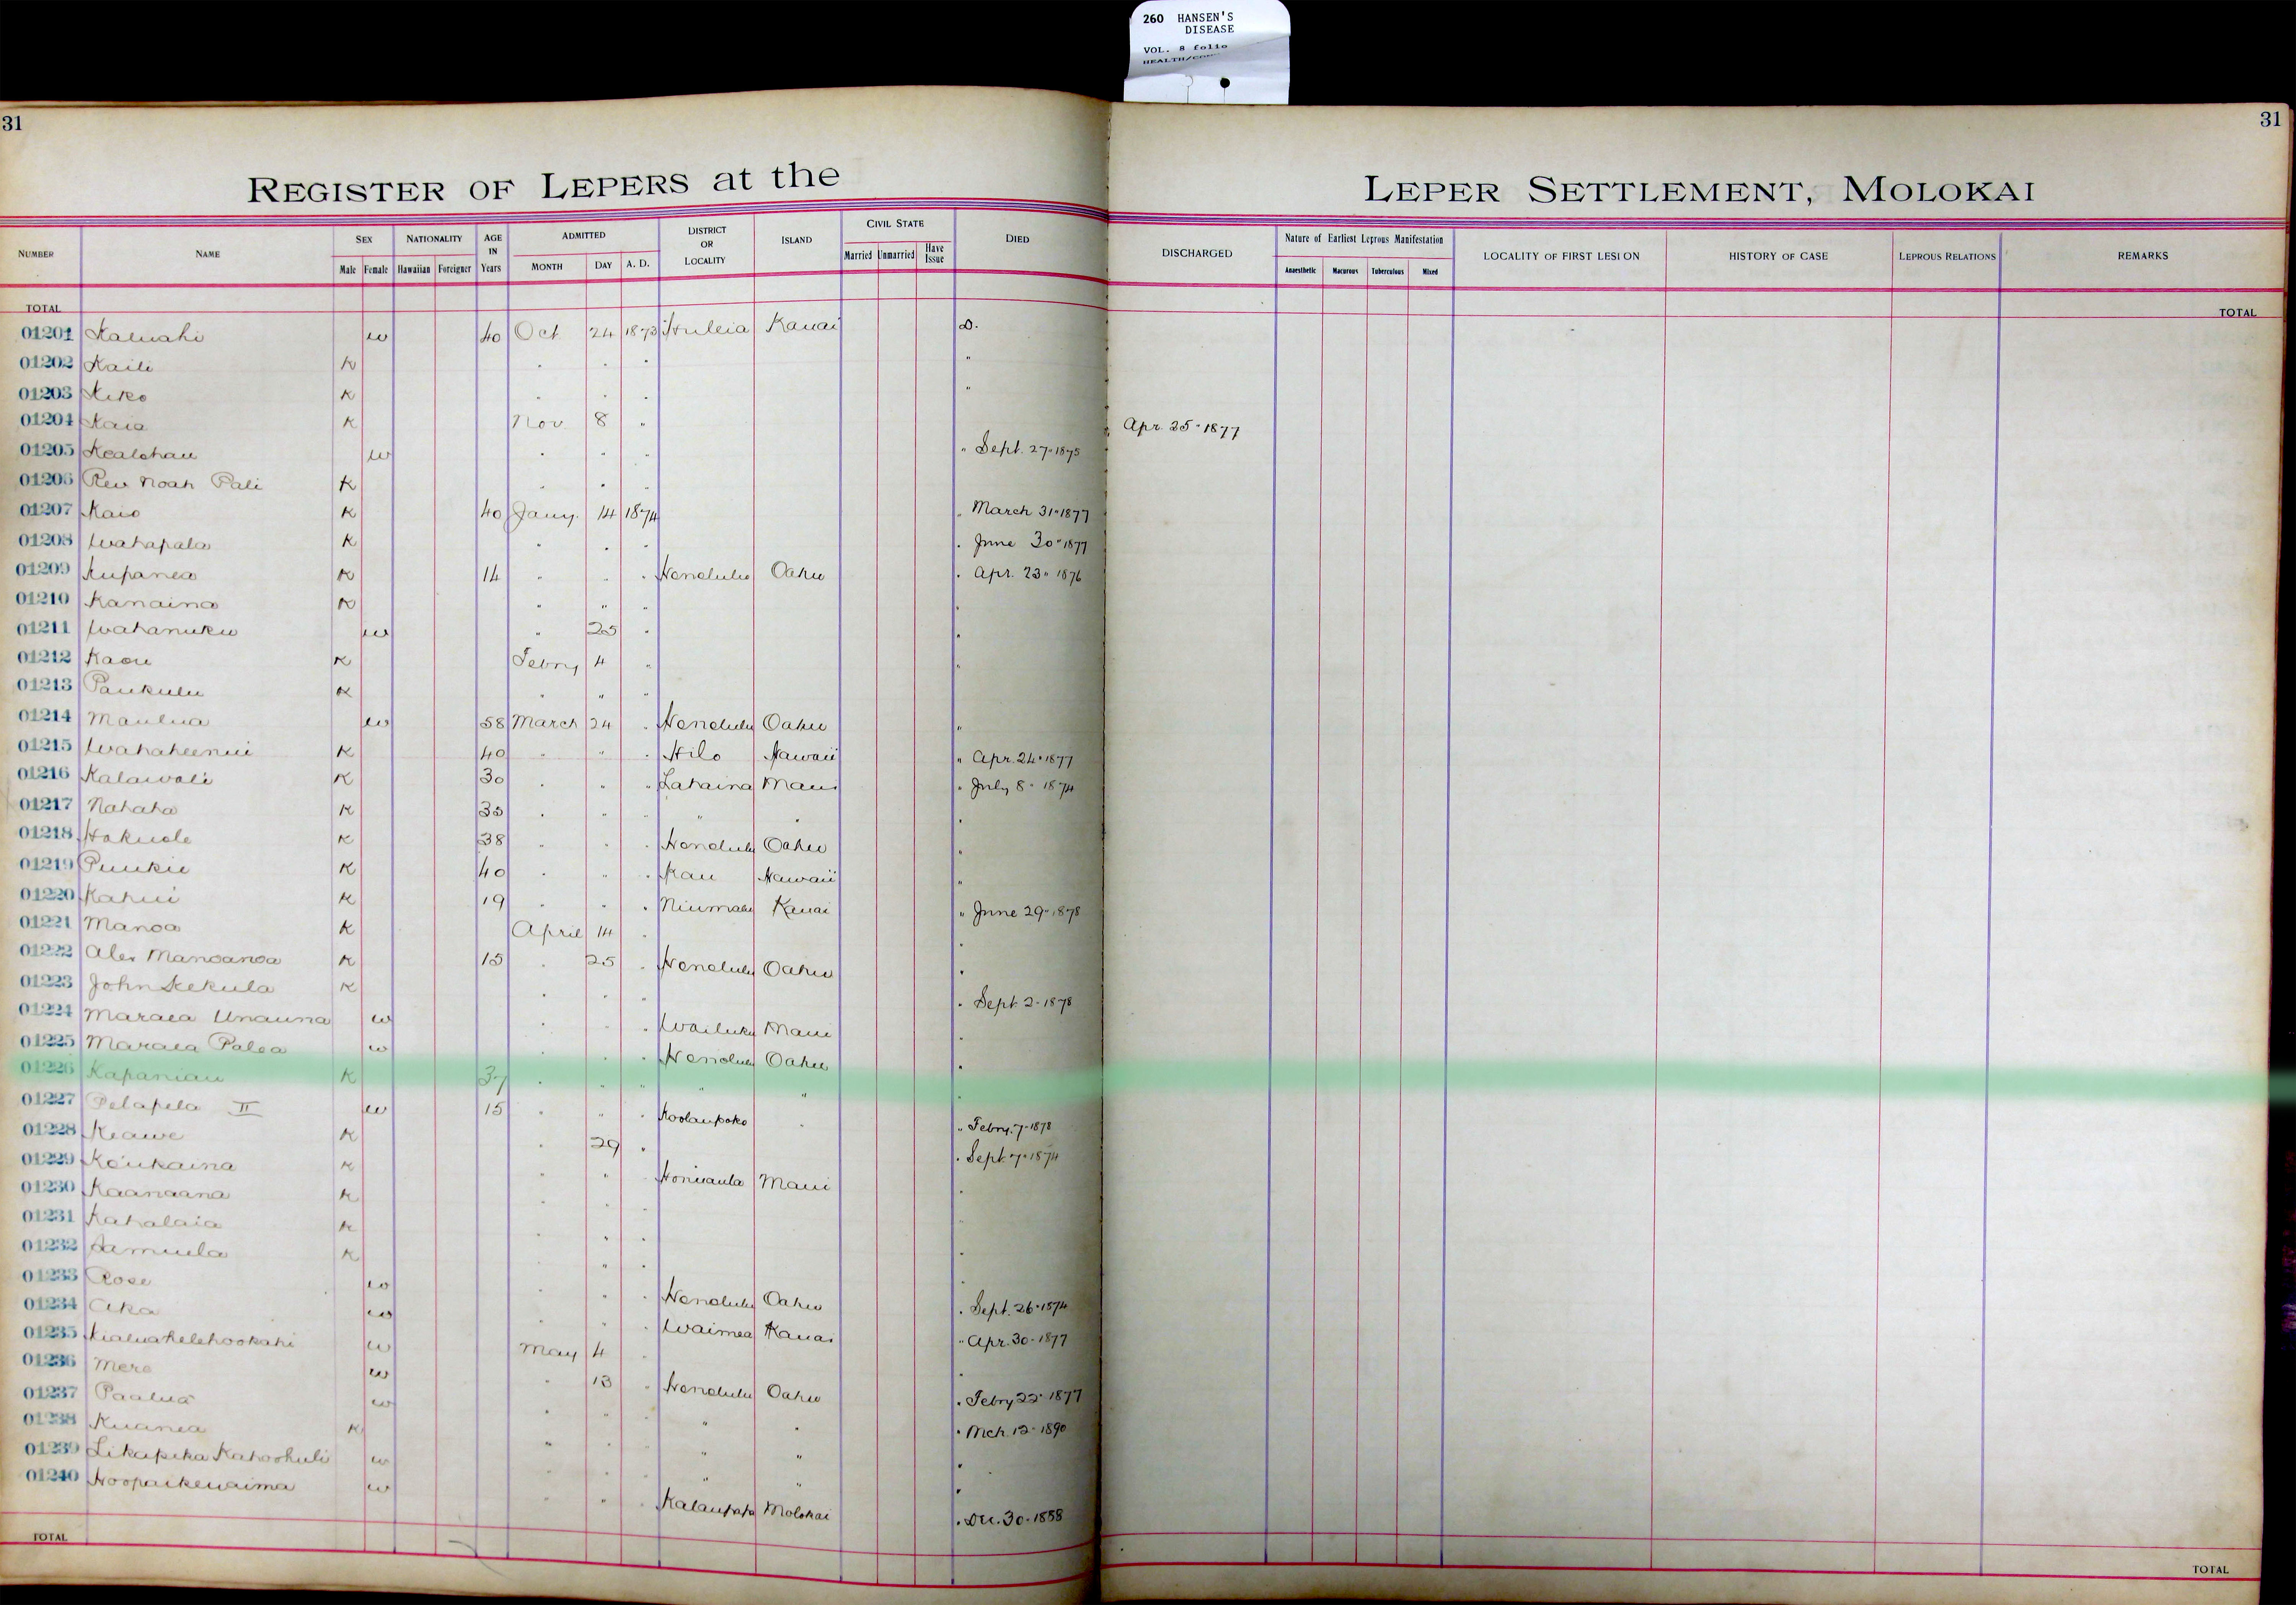 260 HANSEN'S
DISEASE
VOL. 8 folio
31 31
REGISTER OF LEPERS at the LEPER SETTLEMENT, MOLOKAI
NUMBER NAME SEX NATIONALITY AGE IN Years ADMITTED DISTRICT OR LOCALITY ISLAND CIVIL STATE DIED DISCHARGED Nature of Earliest Leprous Manifestation LOCALITY OF FIRST LESION HISTORY OF CASE LEPROUS RELATIONS REMARKS
Male Female Hawaiian Foreigner MONTH DAY A. D. Married Unmarried Have Issue Anaesthetic Macurous Tuberculous Mixed
TOTAL TOTAL
01201 Kaluahi w 40 Oct 24 1873 Huleia Kauai D.
01202 Kaili K " " " "
01203 Keko K " " " "
01204 Kaia K Nov 8 " " Apr. 25" 1877
01205 Kealohau w " " " " Sept. 27" 1875
01206 Rev Noah Pali K " " "
01207 Kaio K 40 Jany. 14 1874 " March 31" 1877
01208 Wahapala K " " " " June 30" 1877
01209 Kupanea K 14 " " " Honolulu Oahu " Apr. 23" 1876
01210 Kanaina K " " " "
01211 Wahanuku w " 25 " "
01212 Kaou K Febry 4 " "
01213 Paukulu K " " "
01214 Maulua w 58 March 24 " Honolulu Oahu "
01215 Wahaheenui K 40 " " " Hilo Hawaii " Apr. 24" 1877
01216 Kalawali K 30 " " " Lahaina Maui " July 8" 1874
01217 Nahaha K 35 " " " " " "
01218 Hokuole K 38 " " " Honolulu Oahu "
01219 Puukii K 40 " " " Kau Hawaii "
01220 Kahui K 19 " " " Niumalu Kauai " June 29" 1878
01221 Manoa K April 14 " "
01222 Alex Manoanoa K 15 " 25 " Honolulu Oahu "
01223 John Kekula K " " " " Sept. 2" 1878
01224 Maraea Unauna w " " " Wailuku Maui "
01225 Maraea Palea w " " " Honolulu Oahu "
01226 Kapaniau K 37 " " " " " "
01227 Pelapela II w 15 " " " Koolaupoko " " Febry. 7" 1878
01228 Keawe K " 29 " " Sept. 7" 1874
01229 Koukaina K " " " Honuaula Maui "
01230 Kaanaana K " " "
01231 Kahalaia K " " " "
01232 Samuela K " " " "
01233 Rose w " " " Honolulu Oahu " Sept. 26" 1874
01234 Aka w " " " Waimea Kauai " Apr. 30" 1877
01235 Kialuahelehookahi w May 4 " "
01236 Mere w " 13 " Honolulu Oahu " Febry 22" 1877
01237 Paalua w " " " " " " Mch. 12" 1890
01238 Kuanea K " " " " " "
01239 Likapeka Kahoohuli w " " " " " "
01240 Hoopaikewaima w " " " Kalaupapa Molokai " Dec. 30" 1888
TOTAL TOTAL